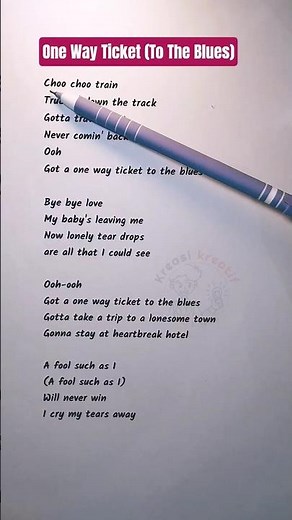 One Way Ticket (To The Blues)
Choo choo train
down the track
Gotta
Never comin' back
Ooh
Got a one way ticket to the blues
Bye bye love
My baby's leaving me
Now lonely tear drops
are all that I could see
Ooh-ooh
Got a one way ticket to the blues
Gotta take a trip to a lonesome town
Gonna stay at heartbreak hotel
A fool such as I
(A fool such as I)
Will never win
I cry my tears away
Kreasi kreatif